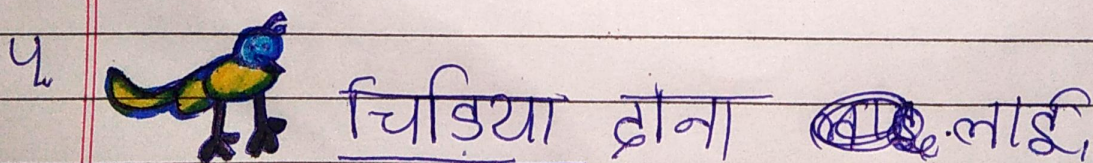 ५. चिडिया दोना लाई,